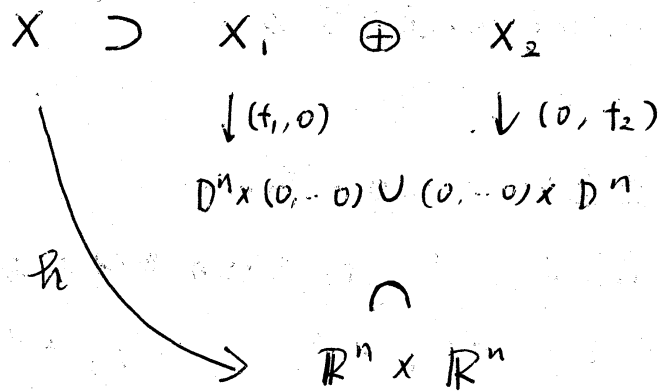 X ⊃ X₁ ⊕ X₂
↓(f₁,0) ↓(0, f₂)
Dⁿ×(0,‥0) ∪ (0,‥0)× Dⁿ
h ∩
ℝⁿ × ℝⁿ